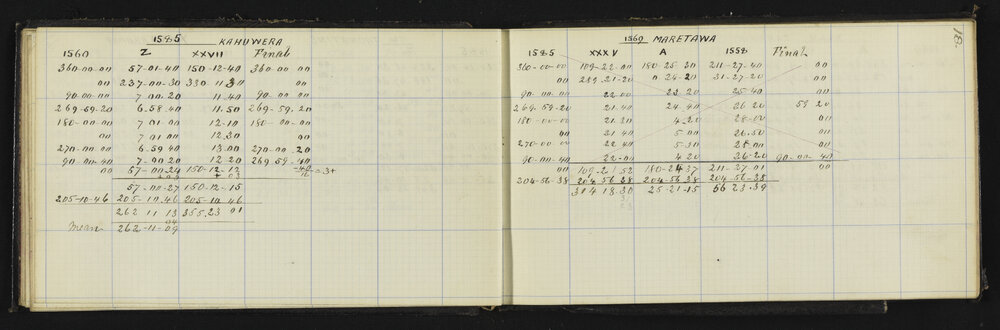 1585 KAHUWERA
1560 Z XXVII Final
360-00-00 57-01-40 150-12-40 360-00-00
00 237-00-30 330 11 30 00
90-00-00 7 00.20 11.40 90 00 00
269-59-20 6.58.40 11.50 269-59.20
180-00-00 7 01 00 12-10 180-00-00
00 7 01 00 12.20 00
270-00-00 6.59 40 13.00 270-00.20
90-00-40 7-00-20 12 20 269 59-40
00 57-00 24 150-12-12
+03 +03
57-00-27 150-12-15
205-10-46 205-10.46 205-10 46
262 11 13 355.23 01
09
Mean 262-11-09
18.
1560 MARETAWA
1585 XXXV A 1558 Final
360-00-00 109-22-00 180-25-30 211-27-40 00
00 289-21-20 0 24-20 31-27-20 00
90-00-00 22 00 22 20 25-40 00
269-59-20 21.40 24-40 26 20 59 20
180-00-00 21.20 4-20 28-00 00
00 21 40 5 00 26.50 00
270-00-00 22 40 5-30 28.00 00
90-00-40 22-00 4 20 26-20 90-00-40
00 109-21 52 180-24 37 211-27-01 00
204-56-38 204-56-38 204-56.38 204-56-38
314 18 30 25-21-15 56 23.39